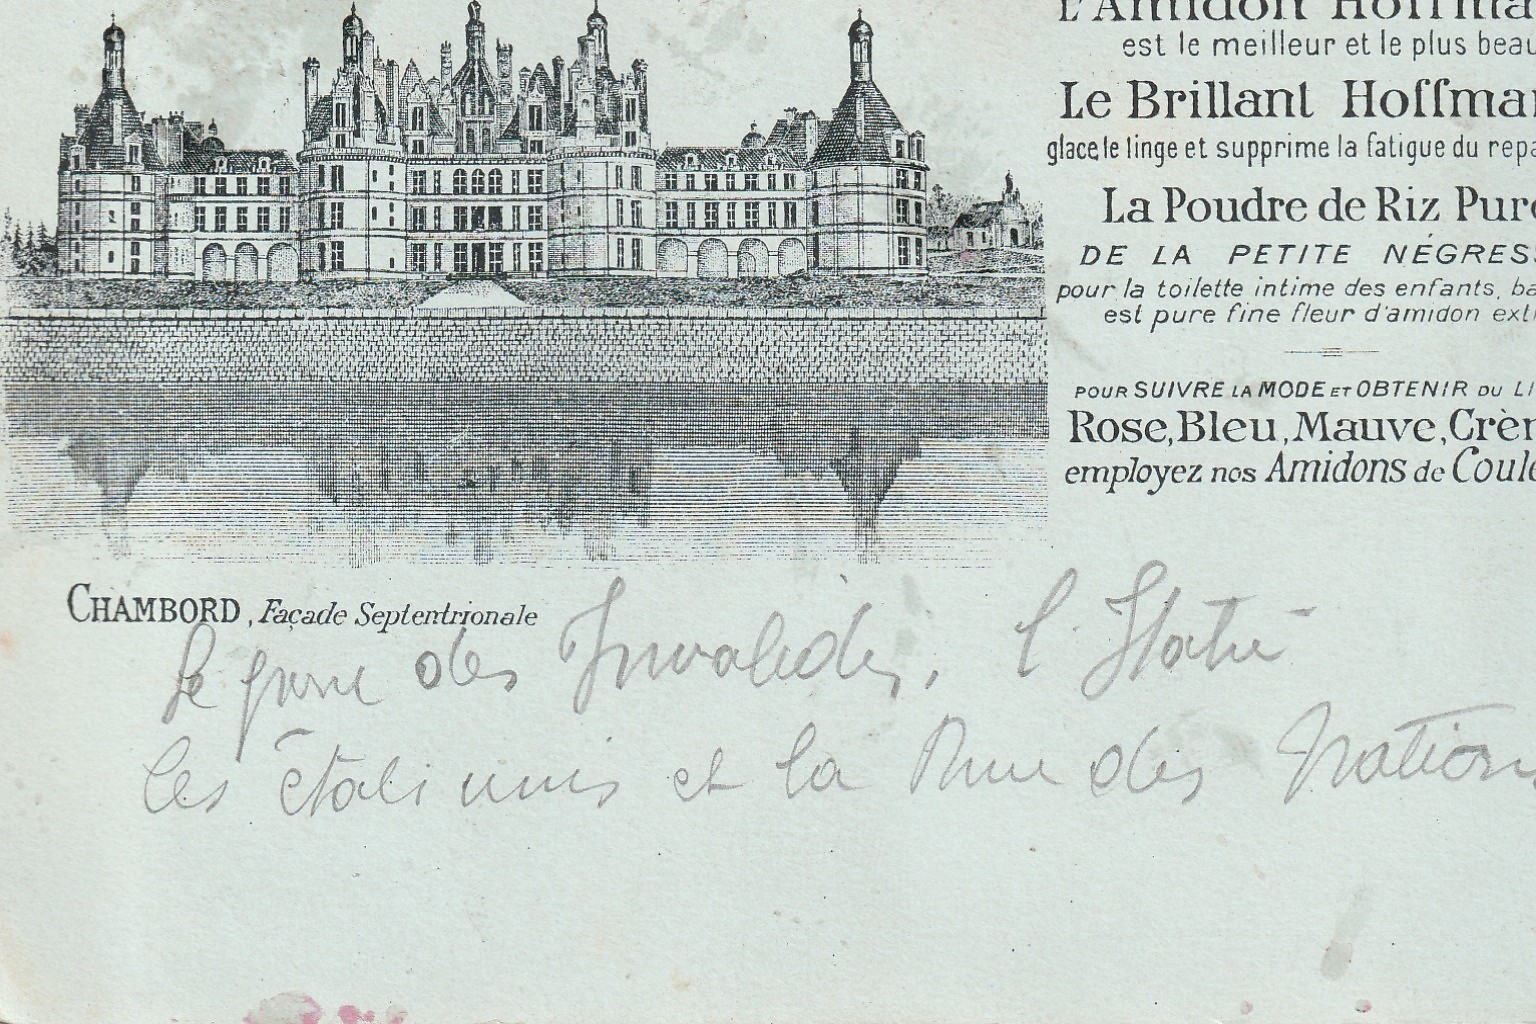 L'Amidon Hoffma
est le meilleur et le plus beau
Le Brillant Hoffma
glace le linge et supprime la fatigue du repa
La Poudre de Riz Pure
DE LA PETITE NÉGRESS
pour la toilette intime des enfants, ba
est pure fine fleur d'amidon ext
POUR SUIVRE LA MODE ET OBTENIR DU LI
Rose, Bleu, Mauve, Crèm
employez nos Amidons de Coule
CHAMBORD, Façade Septentrionale
Le des Invalides, l'
les et la Rue des Nation